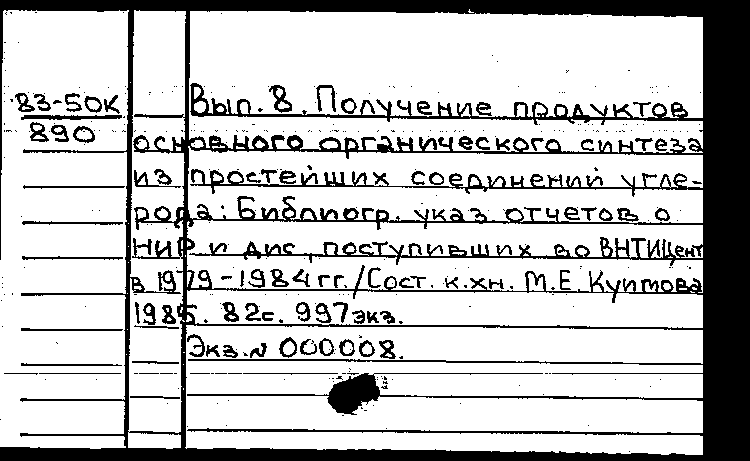 83-50К
890
Вып. 8. Получение продуктов
основного органического синтеза
из простейших соединений угле-
рода: Библиогр. указ отчетов о
НИР и дис, поступивших во ВНТИЦент
в 1979-1984 гг. /Сост. к.хн. М.Е. Куимова
1985. 82с. 997экз.
Экз. № 000008.